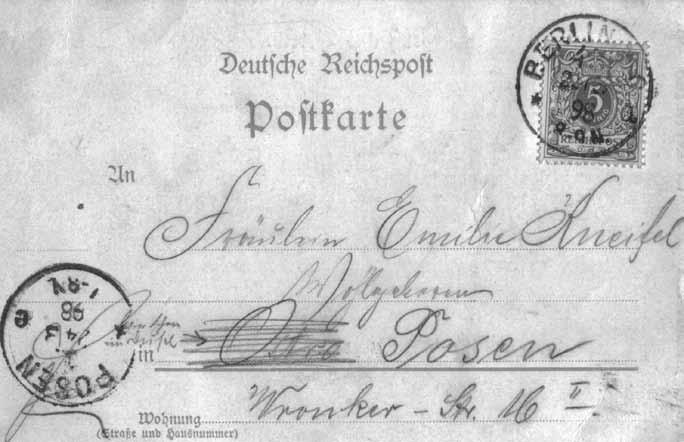 Deutsche Reichspost
Postkarte
BERLIN
98
8-9N.
5
REICHSPOST
An
Fräulein Emilie Kneifel
Wohlgeboren
POSEN
98
in Posen
Wohnung Wronker-Str. 16 II.
(Straße und Hausnummer)